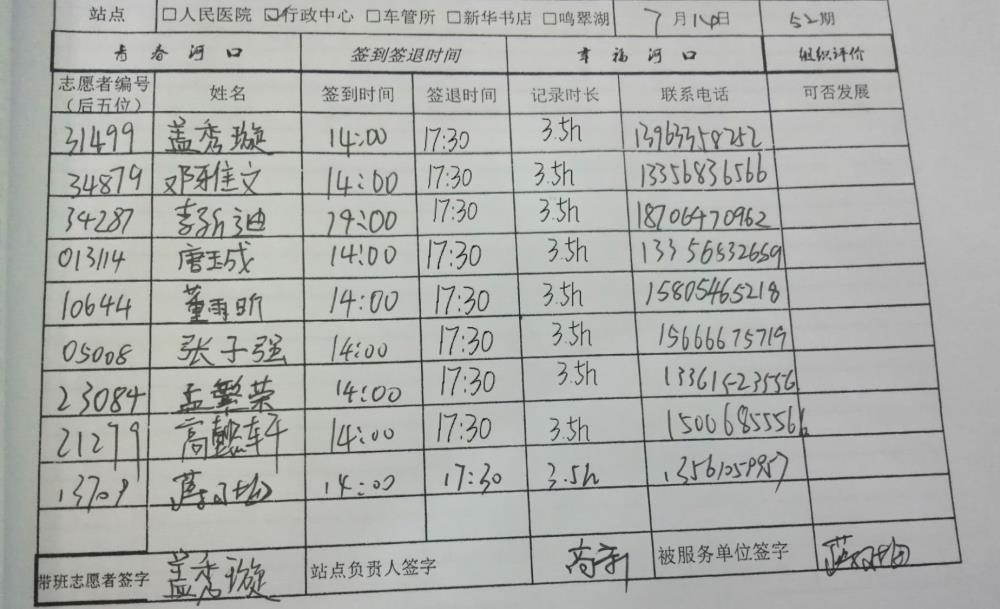 站点 □人民医院 ☑行政中心 □车管所 □新华书店 □鸣翠湖 7月14日 52期
青春河口 签到签退时间 幸福河口 组织评价
志愿者编号（后五位） 姓名 签到时间 签退时间 记录时长 联系电话 可否发展
31499 盖秀璇 14:00 17:30 3.5h 13963358252
34879 邓雅文 14:00 17:30 3.5h 13356836566
34287 李新迪 14:00 17:30 3.5h 18706470962
013114 唐玉成 14:00 17:30 3.5h 13356832659
10644 董雨昕 14:00 17:30 3.5h 15805465218
05008 张子强 14:00 17:30 3.5h 15666675719
23084 孟繁荣 14:00 17:30 3.5h 13361523556
21279 高 14:00 17:30 3.5h 15006855566
13709 14:00 17:30 3.5h 13561059957
带班志愿者签字 盖秀璇 站点负责人签字 高新 被服务单位签字